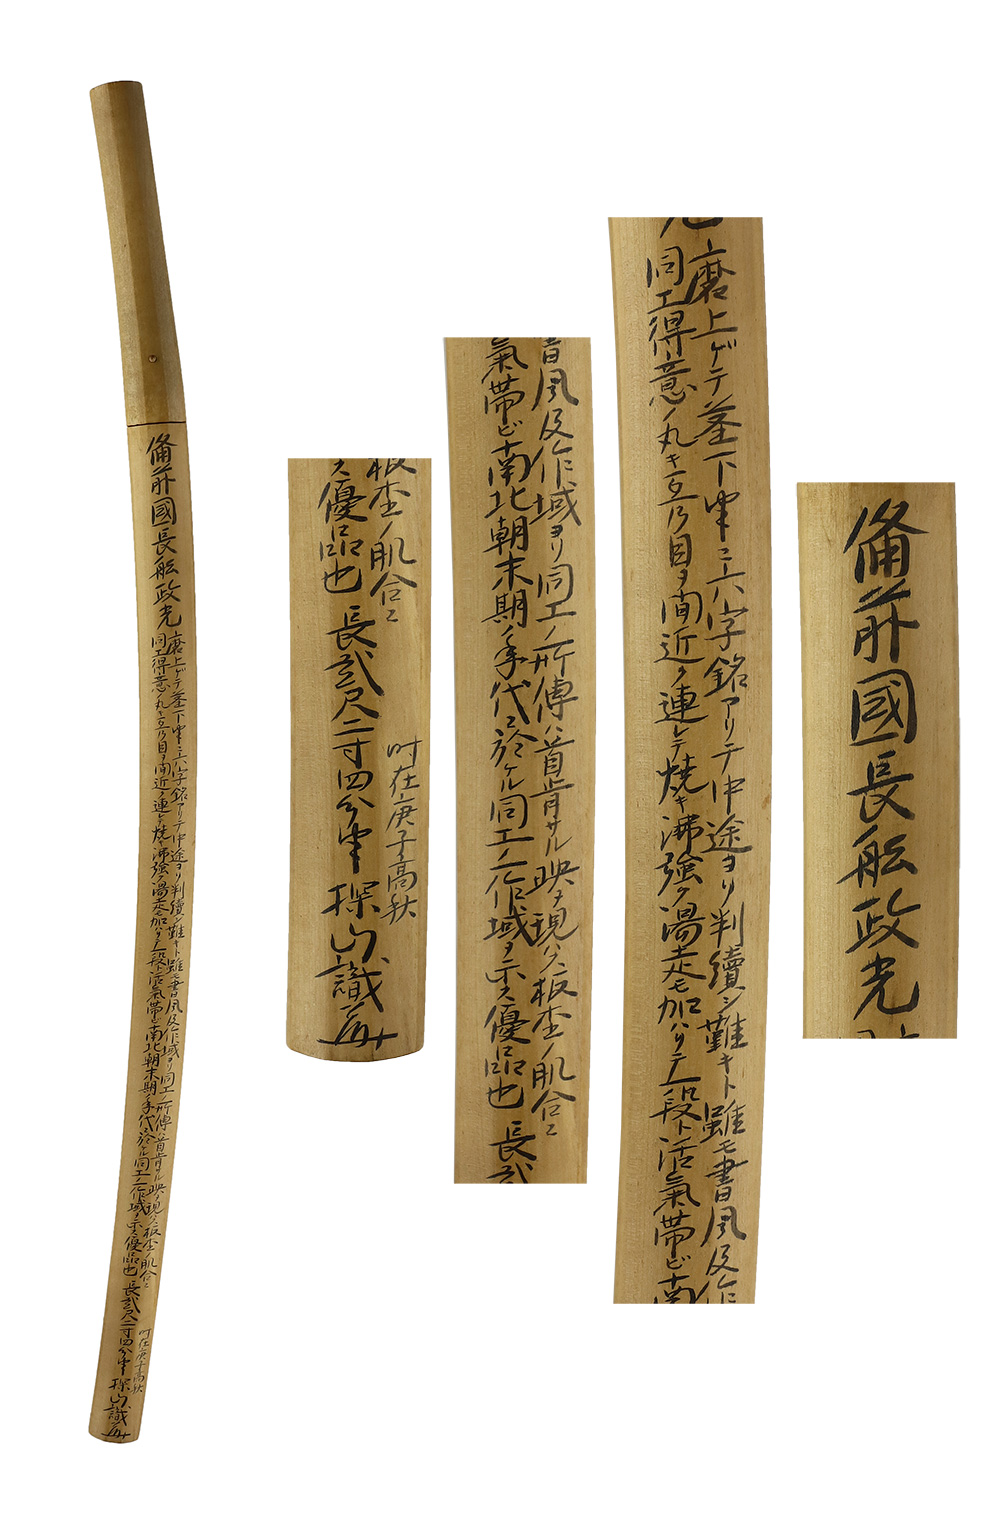 備前國長船政光
磨上ゲテ茎下半ニ六字銘アリテ中途ヨリ判讀シ難キト雖モ書風及作域ヨリ同工ノ所傳ハ首肯サル映ヲ現ハス板杢ノ肌合ニ
同工得意ノ丸キ互乃目ヲ間近ク連レテ焼キ沸強ク湯走モ加ハリテ一段ト活氣帯ビ南北朝末期ノ年代ニ於ケル同工ノ作域ヲ示ス優品也
長貳尺二寸四分半
時在庚子高秋
探山識